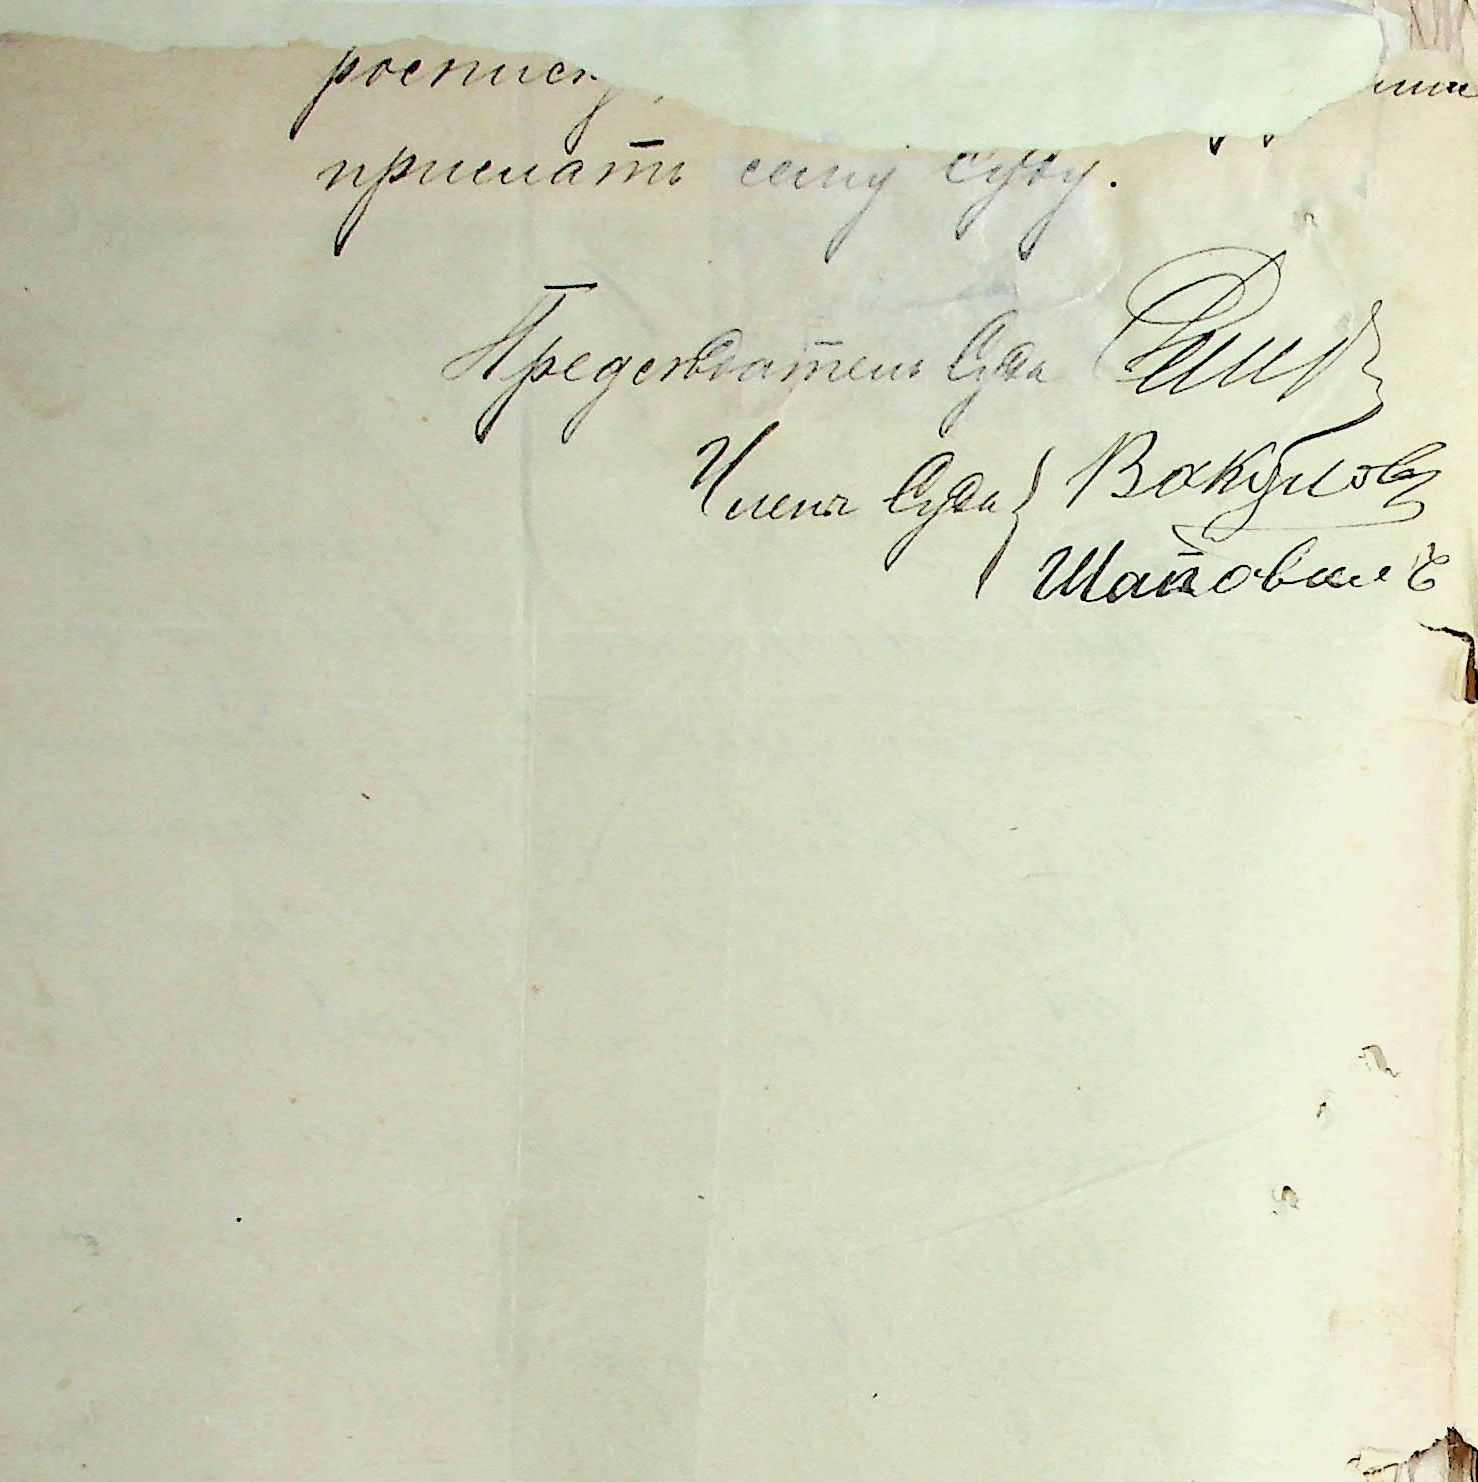 росписку
прислать сему Суду.
Председатель Суда
Члены Суда } Вакулов
Шаповал